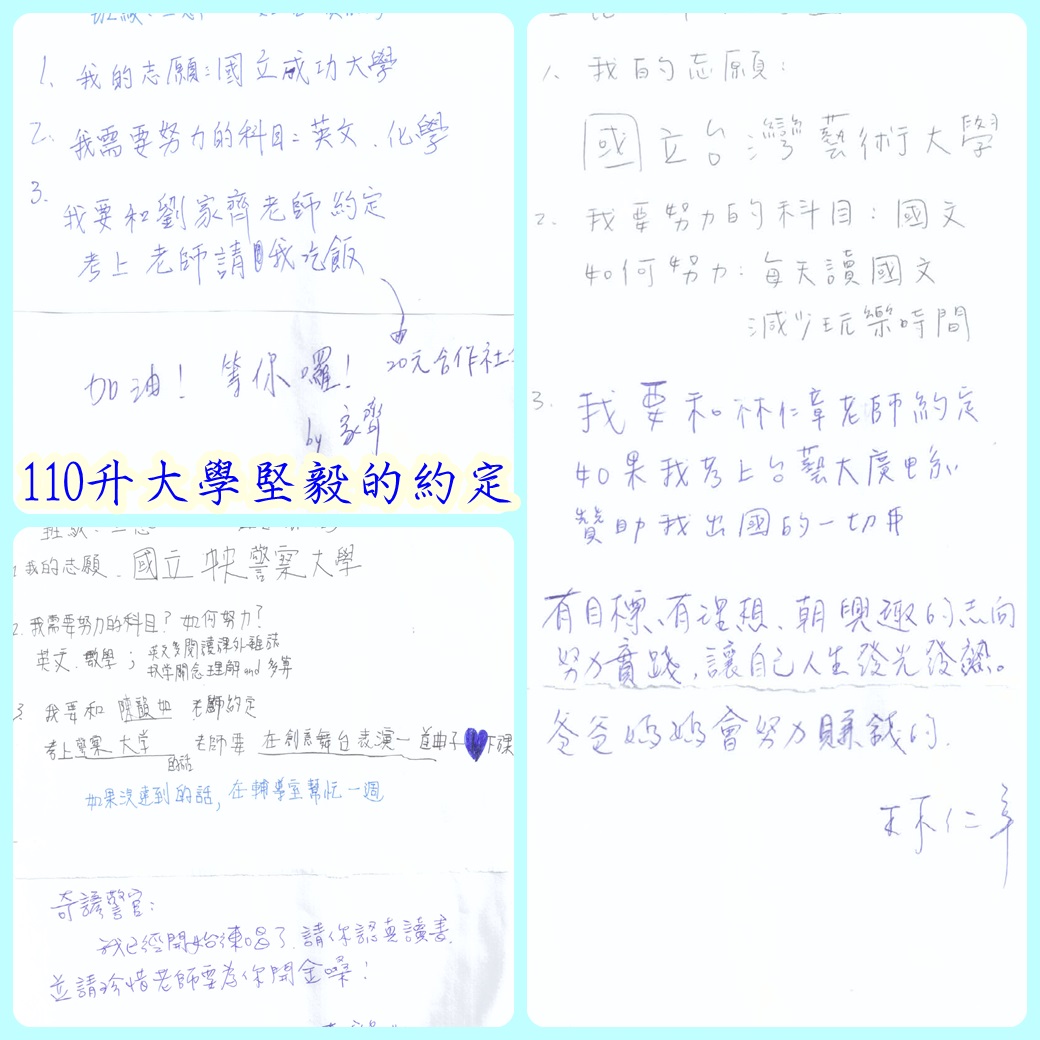 1. 我的志願:國立成功大學
2. 我需要努力的科目:英文.化學
3.
我要和劉家齊老師約定
考上老師請我吃飯
20元合作社
加油! 等你囉!
by 家齊
110升大學堅毅的約定
我的志願.國立中央警察大學
2. 我需要努力的科目?如何努力?
英文.數學; 英文多閱讀課外雜誌
數學觀念理解and多算
3. 我要和 老師約定
考上警察大學 老師要 在創意舞台表演一首曲子 下課
的話
如果沒達到的話,在輔導室幫忙一週
奇諺警官:
我已經開始練唱了.請你認真讀書.
並請珍惜老師要為你開金嗓!
1. 我的志願:
國立台灣藝術大學
2. 我要努力的科目:國文
如何努力:每天讀國文
減少玩樂時間
3. 我要和林仁章老師約定
如果我考上台藝大廣電系
贊助我出國的一切
有目標、有理想、朝興趣的志向
努力實踐,讓自己人生發光發熱。
爸爸媽媽會努力賺錢的.
林仁章